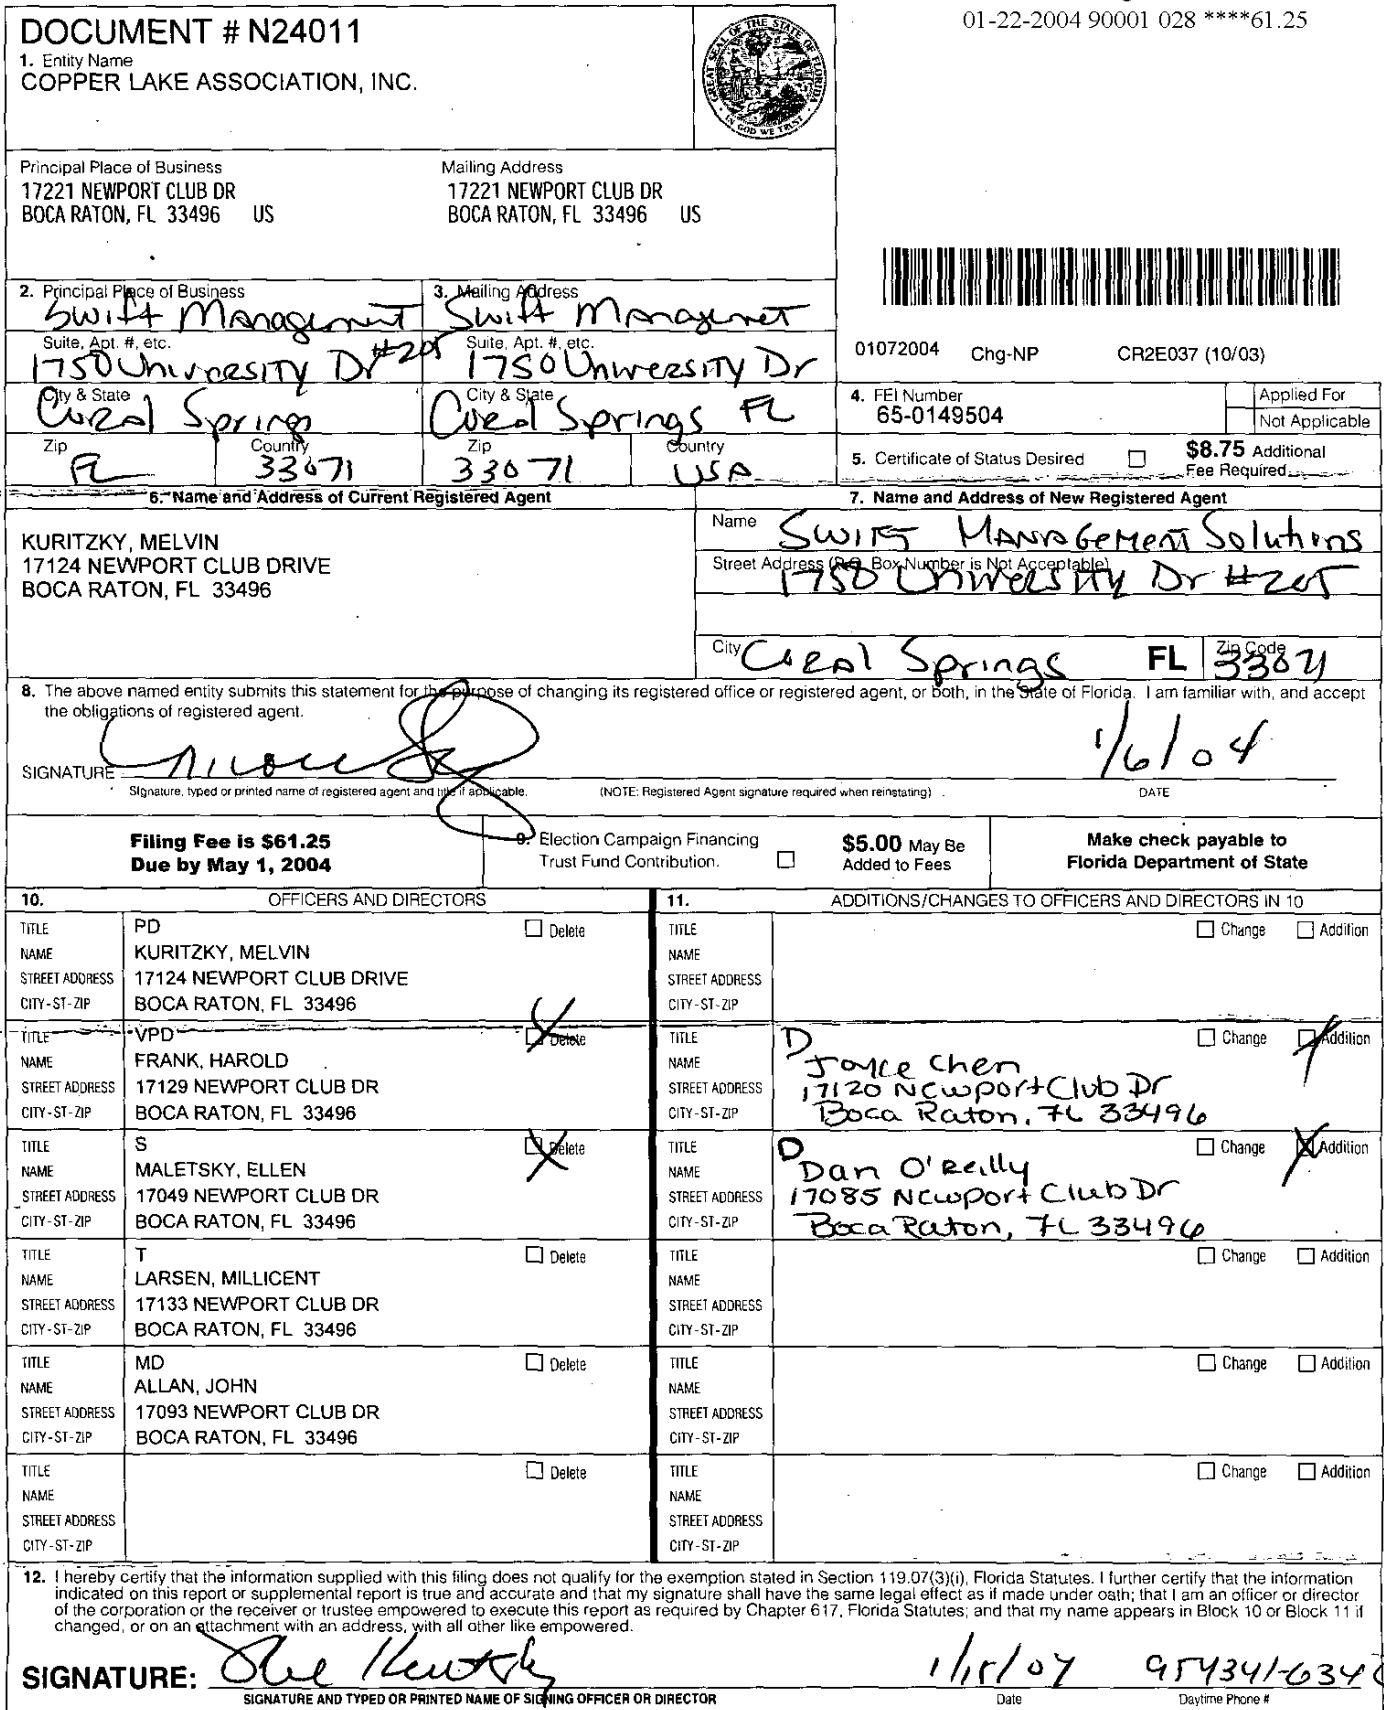 01-22-2004 90001 028 ****61.25
DOCUMENT # N24011
1. Entity Name
COPPER LAKE ASSOCIATION, INC.
GREAT SEAL OF THE STATE OF FLORIDA
IN GOD WE TRUST
Principal Place of Business
17221 NEWPORT CLUB DR
BOCA RATON, FL 33496 US
Mailing Address
17221 NEWPORT CLUB DR
BOCA RATON, FL 33496 US
2. Principal Place of Business
Swift Management
Suite, Apt. #, etc.
1750 University Dr #205
City & State
Coral Springs
Zip
FL
Country
33071
3. Mailing Address
Swift Managmet
Suite, Apt. #, etc.
1750 University Dr
City & State
Coral Springs FL
Zip
33071
Country
USA
01072004 Chg-NP CR2E037 (10/03)
4. FEI Number
65-0149504
Applied For
Not Applicable
5. Certificate of Status Desired
$8.75 Additional
Fee Required
6. Name and Address of Current Registered Agent
KURITZKY, MELVIN
17124 NEWPORT CLUB DRIVE
BOCA RATON, FL 33496
7. Name and Address of New Registered Agent
Name Swift Management Solutions
Street Address (P.O. Box Number is Not Acceptable)
1750 University Dr #205
City Coral Springs FL Zip Code 33071
8. The above named entity submits this statement for the purpose of changing its registered office or registered agent, or both, in the State of Florida. I am familiar with, and accept
the obligations of registered agent.
SIGNATURE 1/6/04
Signature, typed or printed name of registered agent and title if applicable. (NOTE: Registered Agent signature required when reinstating) DATE
Filing Fee is $61.25
Due by May 1, 2004
9. Election Campaign Financing
Trust Fund Contribution.
$5.00 May Be
Added to Fees
Make check payable to
Florida Department of State
10. OFFICERS AND DIRECTORS
TITLE PD Delete
NAME KURITZKY, MELVIN
STREET ADDRESS 17124 NEWPORT CLUB DRIVE
CITY-ST-ZIP BOCA RATON, FL 33496
TITLE VPD Delete
NAME FRANK, HAROLD
STREET ADDRESS 17129 NEWPORT CLUB DR
CITY-ST-ZIP BOCA RATON, FL 33496
TITLE S Delete
NAME MALETSKY, ELLEN
STREET ADDRESS 17049 NEWPORT CLUB DR
CITY-ST-ZIP BOCA RATON, FL 33496
TITLE T Delete
NAME LARSEN, MILLICENT
STREET ADDRESS 17133 NEWPORT CLUB DR
CITY-ST-ZIP BOCA RATON, FL 33496
TITLE MD Delete
NAME ALLAN, JOHN
STREET ADDRESS 17093 NEWPORT CLUB DR
CITY-ST-ZIP BOCA RATON, FL 33496
TITLE Delete
NAME
STREET ADDRESS
CITY-ST-ZIP
11. ADDITIONS/CHANGES TO OFFICERS AND DIRECTORS IN 10
TITLE Change Addition
NAME
STREET ADDRESS
CITY-ST-ZIP
TITLE D Change Addition
NAME Joyce Chen
STREET ADDRESS 17120 Newport Club Dr
CITY-ST-ZIP Boca Raton, FL 33496
TITLE D Change Addition
NAME Dan O'Reilly
STREET ADDRESS 17085 Newport Club Dr
CITY-ST-ZIP Boca Raton, FL 33496
TITLE Change Addition
NAME
STREET ADDRESS
CITY-ST-ZIP
TITLE Change Addition
NAME
STREET ADDRESS
CITY-ST-ZIP
TITLE Change Addition
NAME
STREET ADDRESS
CITY-ST-ZIP
12. I hereby certify that the information supplied with this filing does not qualify for the exemption stated in Section 119.07(3)(i), Florida Statutes. I further certify that the information
indicated on this report or supplemental report is true and accurate and that my signature shall have the same legal effect as if made under oath; that I am an officer or director
of the corporation or the receiver or trustee empowered to execute this report as required by Chapter 617, Florida Statutes; and that my name appears in Block 10 or Block 11 if
changed, or on an attachment with an address, with all other like empowered.
SIGNATURE: 1/15/04
SIGNATURE AND TYPED OR PRINTED NAME OF SIGNING OFFICER OR DIRECTOR Date Daytime Phone #